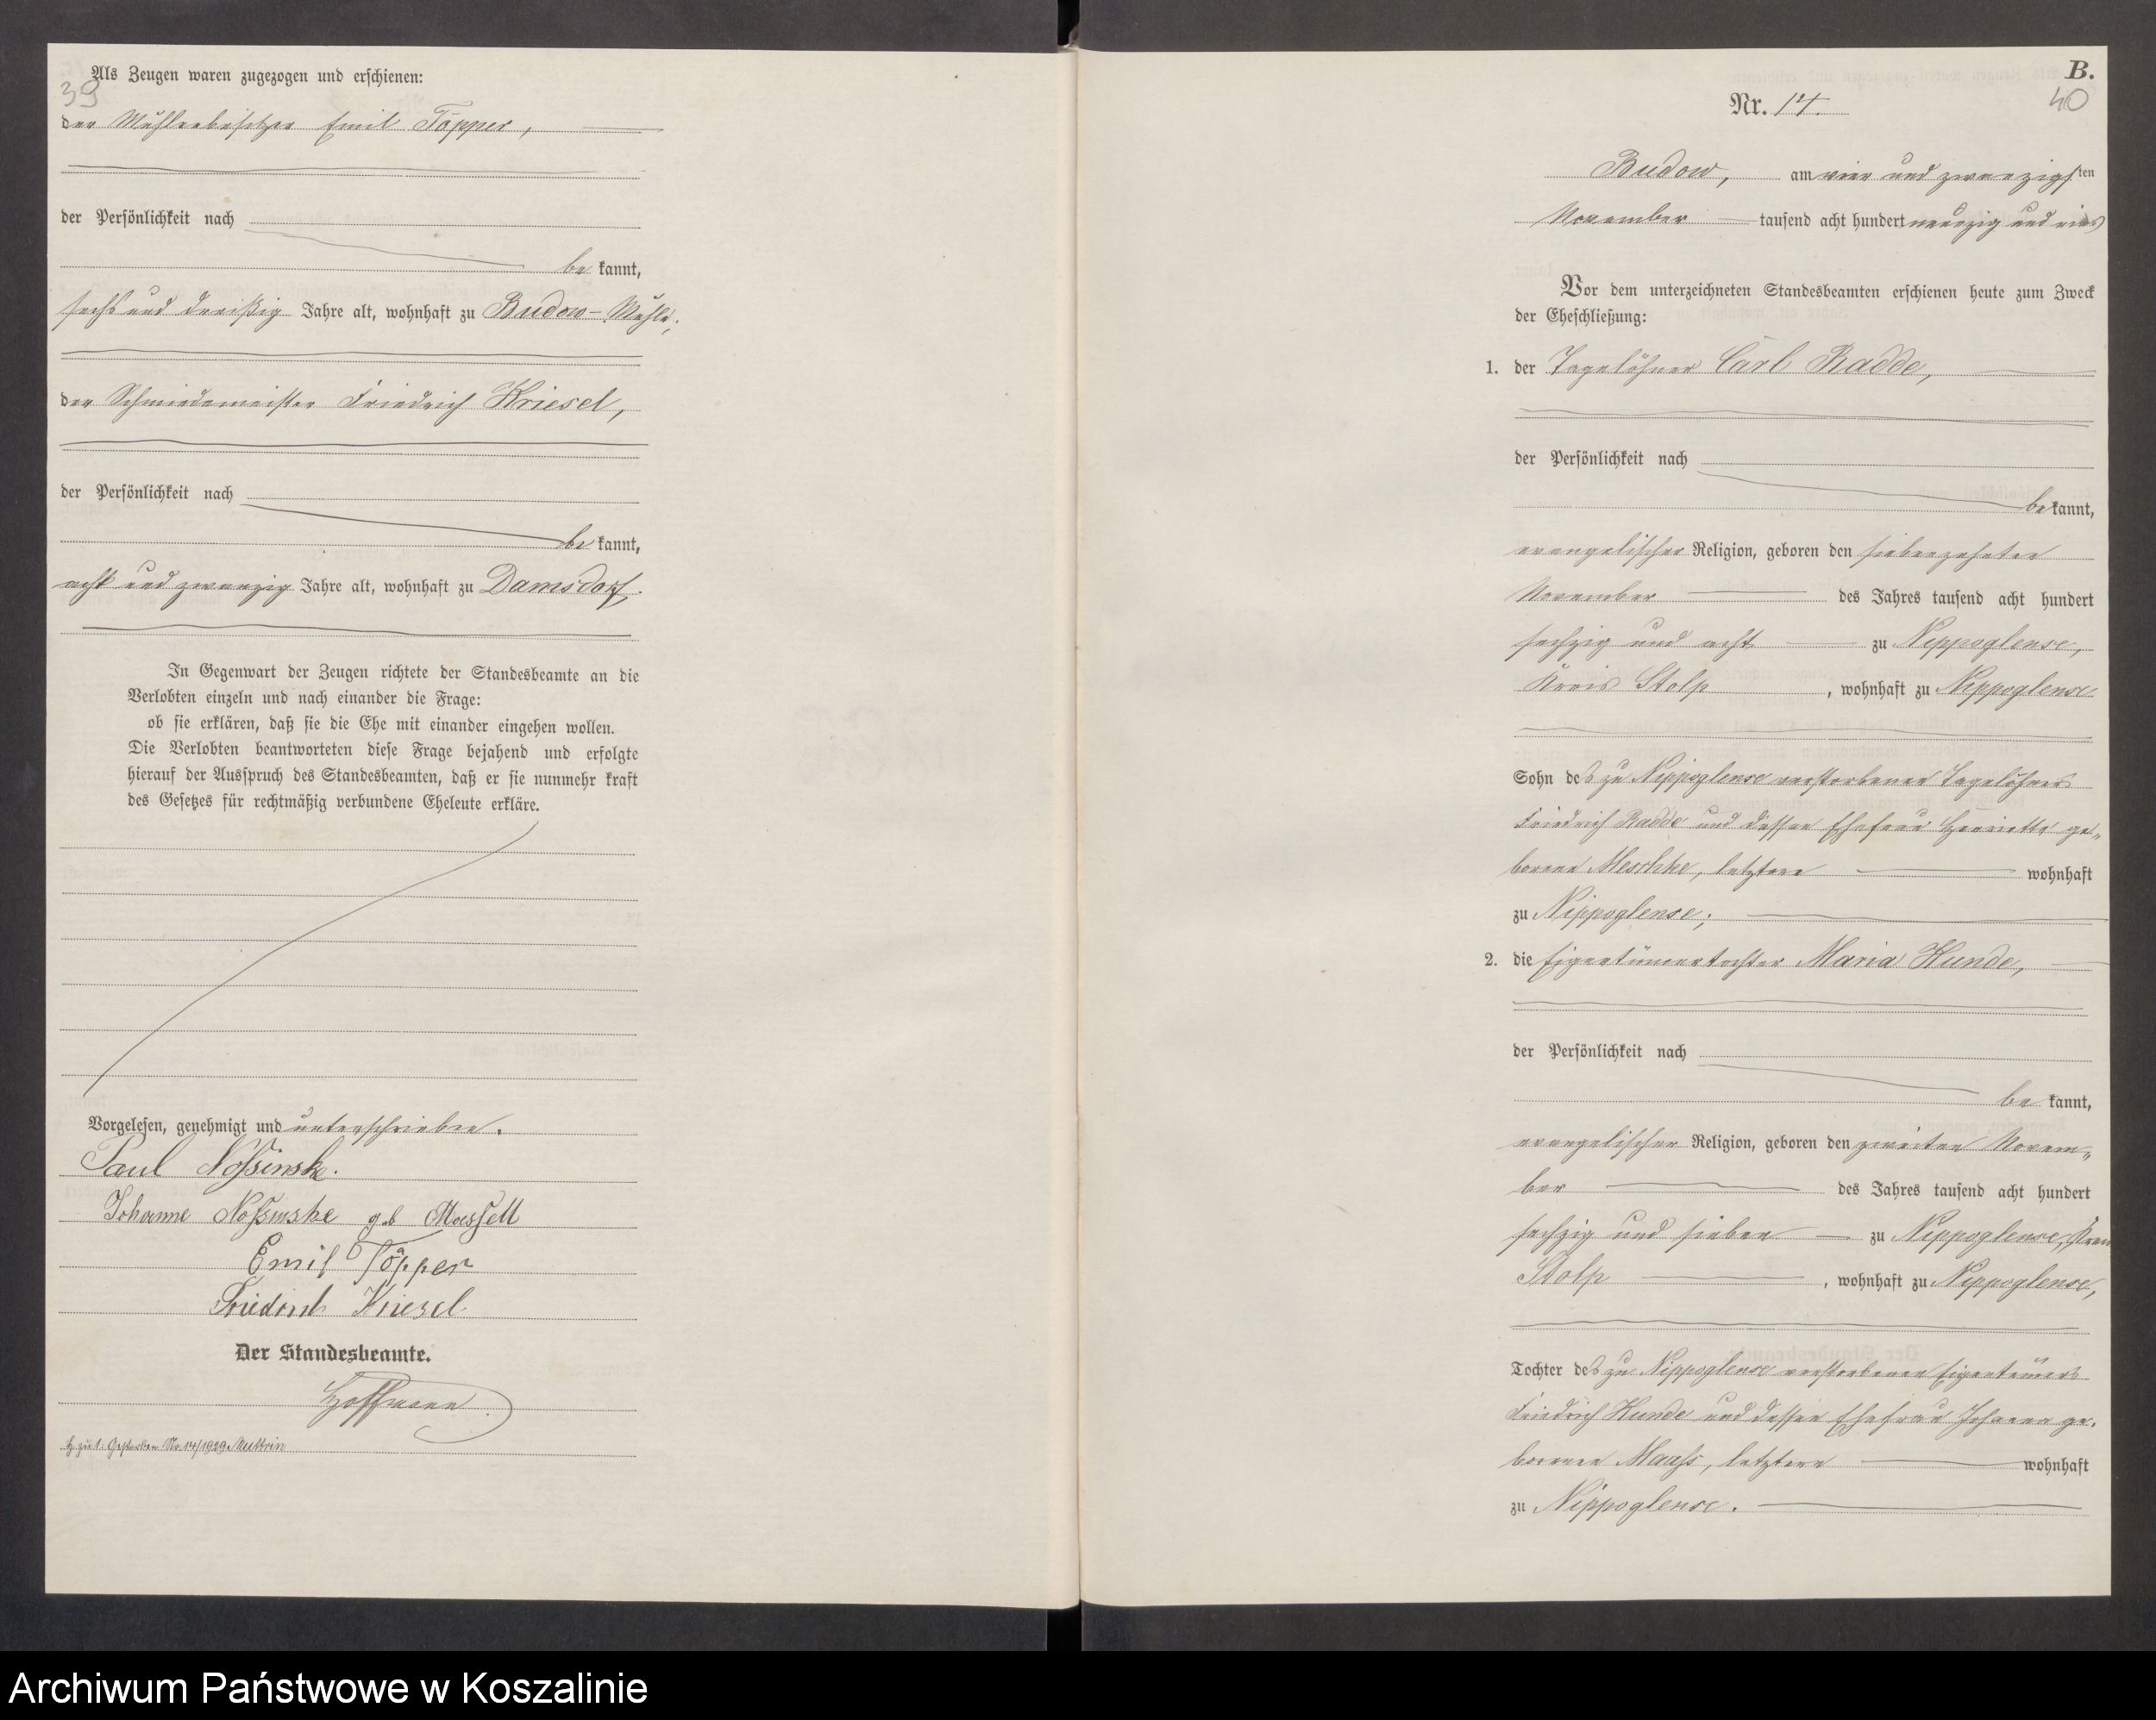 39
Als Zeugen waren zugezogen und erschienen:
der Mühlenbesitzer Emil Töpper,
der Persönlichkeit nach
be kannt,
sechs und dreißig Jahre alt, wohnhaft zu Budow-Mühle;
der Schmiedemeister Friedrich Kriesel,
der Persönlichkeit nach
be kannt,
acht und zwanzig Jahre alt, wohnhaft zu Damsdorf.
In Gegenwart der Zeugen richtete der Standesbeamte an die
Verlobten einzeln und nach einander die Frage:
ob sie erklären, daß sie die Ehe mit einander eingehen wollen.
Die Verlobten beantworteten diese Frage bejahend und erfolgte
hierauf der Ausspruch des Standesbeamten, daß er sie nunmehr kraft
des Gesetzes für rechtmäßig verbundene Eheleute erkläre.
Vorgelesen, genehmigt und unterschrieben.
Paul Noßinske.
Johanne Noßinske geb Massell
Emil Töpper
Friedrich Kriesel
Der Standesbeamte.
Hoffmann
Gestorben No 14/1929 Muttrin
B.
40
Nr. 14.
Budow, am vier und zwanzigsten
November tausend acht hundert neunzig und eins
Vor dem unterzeichneten Standesbeamten erschienen heute zum Zweck
der Eheschließung:
1. der Tagelöhner Carl Radde,
der Persönlichkeit nach
be kannt,
evangelischer Religion, geboren den siebenzehnten
November des Jahres tausend acht hundert
sechzig und acht zu Nippoglense,
Kreis Stolp, wohnhaft zu Nippoglense
Sohn des zu Nippoglense verstorbenen Tagelöhners
Friedrich Radde und dessen Ehefrau Henriette ge-
borene Meschke, letztere wohnhaft
zu Nippoglense;
2. die Eigentümertochter Maria Kunde,
der Persönlichkeit nach
be kannt,
evangelischer Religion, geboren den zweiten Novem-
ber des Jahres tausend acht hundert
sechzig und sieben zu Nippoglense, Kreis
Stolp, wohnhaft zu Nippoglense,
Tochter des zu Nippoglense verstorbenen Eigentümers
Friedrich Kunde und dessen Ehefrau Johanna ge-
borenen Maaß, letztere wohnhaft
zu Nippoglense.
Archiwum Państwowe w Koszalinie